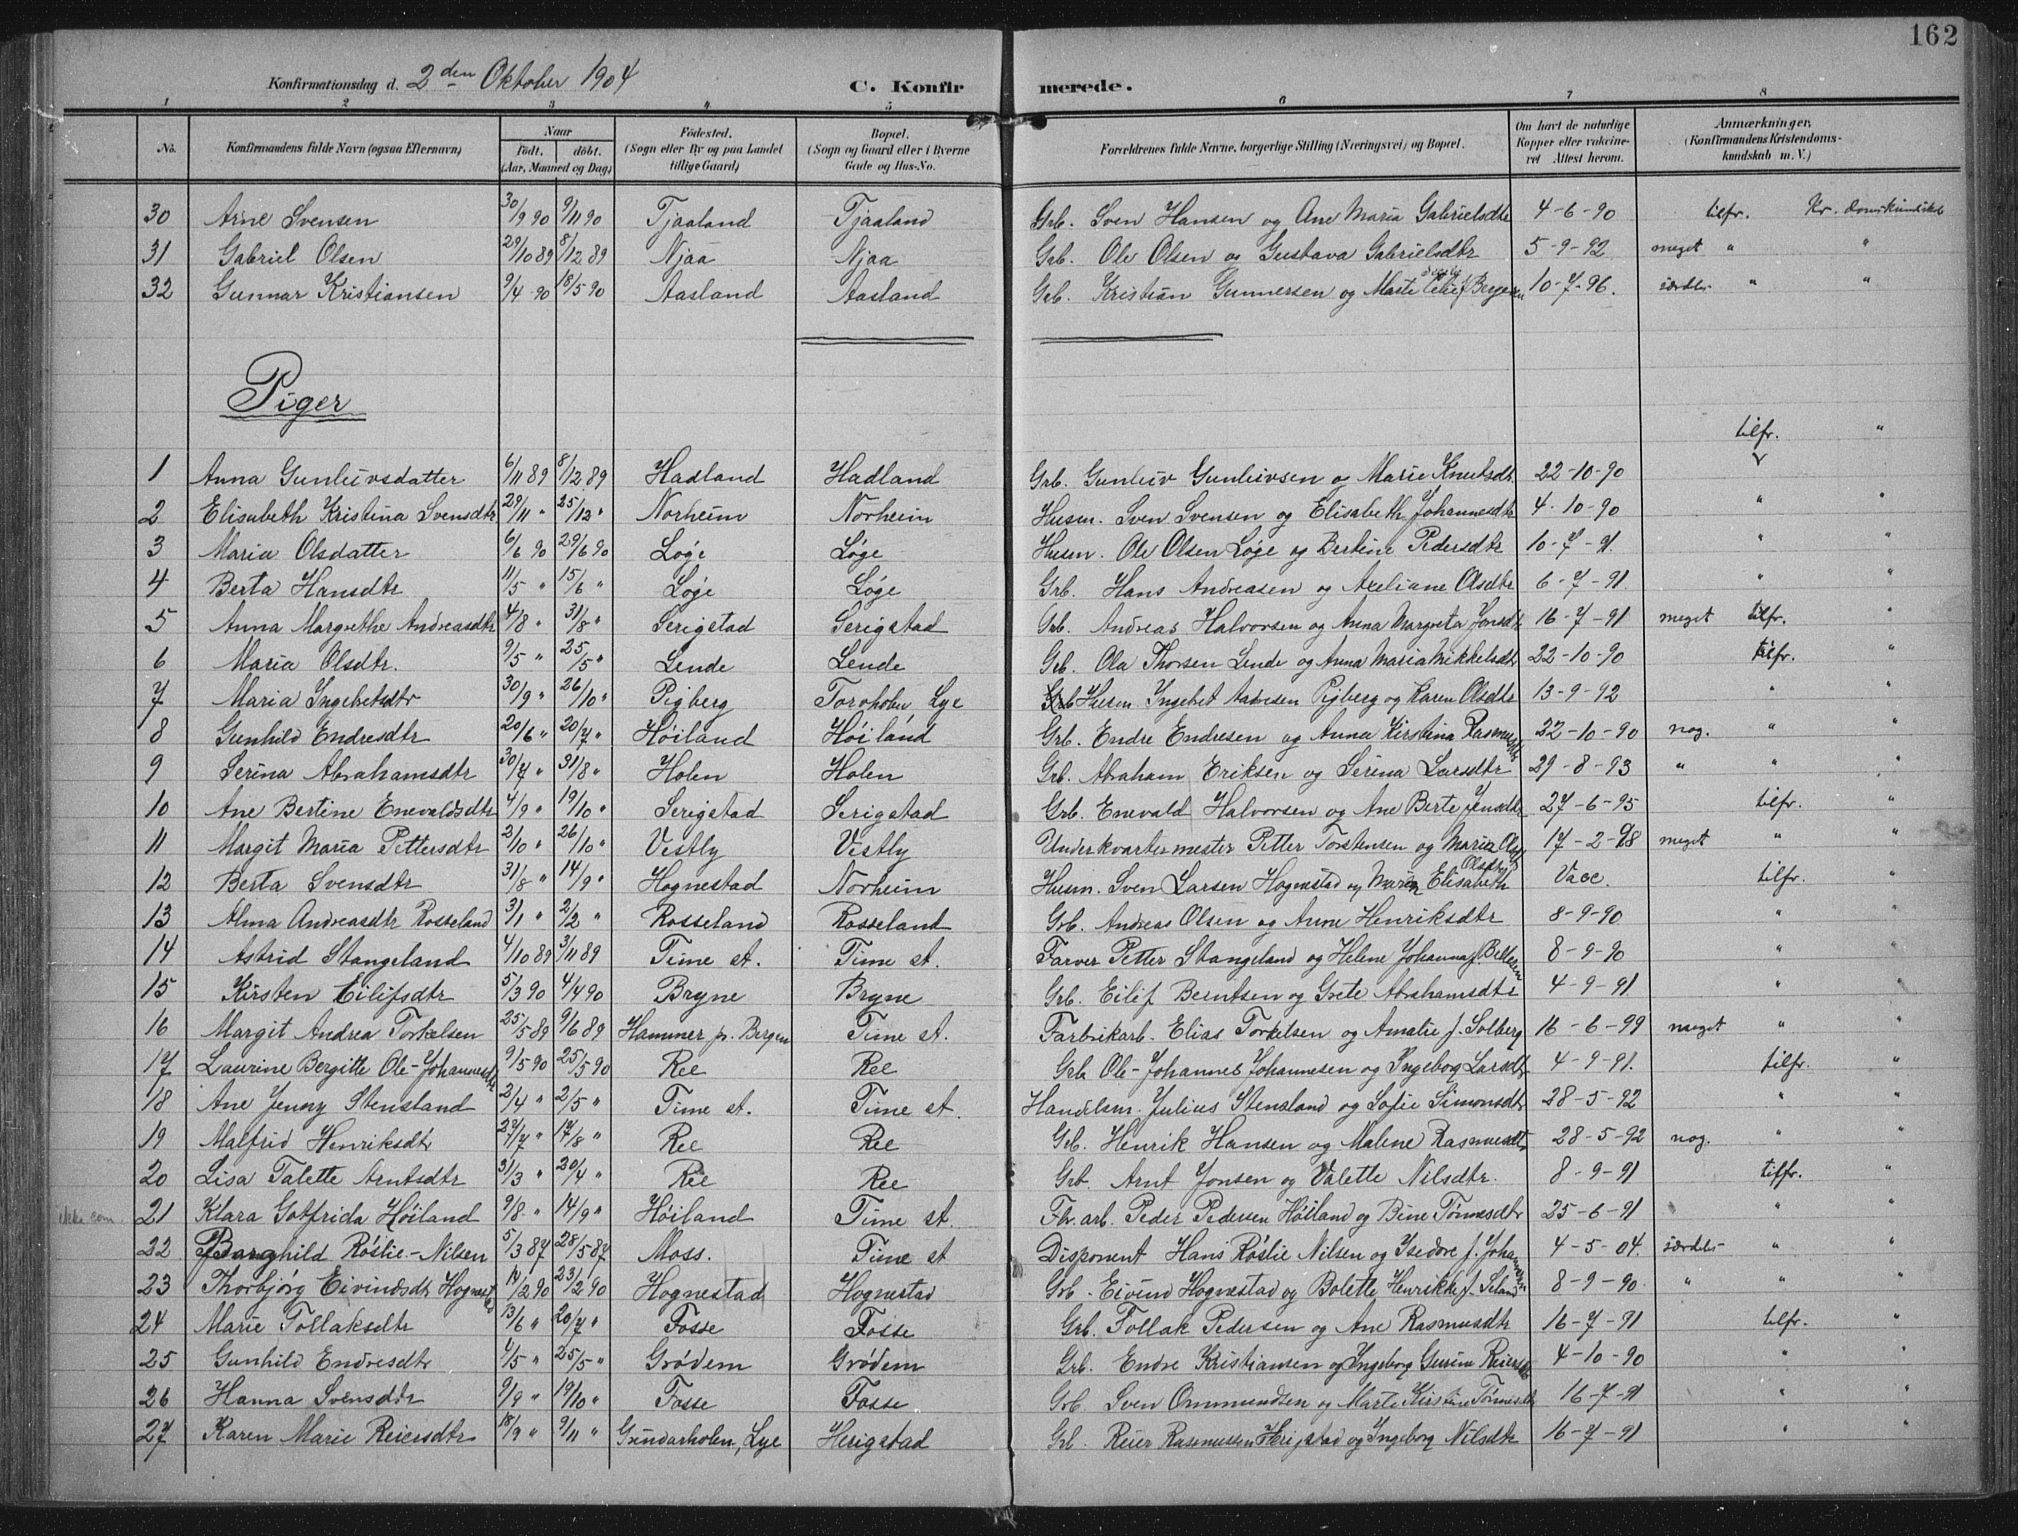 162
Konfirmationsdag d. 2den Oktober 1904 C. Konfirmerede.
1 2 3 4 5 6 7 8
No. Konfirmandens fulde Navn (ogsaa Efternavn) Naar födt. döbt. (Aar, Maaned og Dag) Födested. (Sogn eller By og paa Landet tillige Gaard) Bopæl. (Sogn og Gaard eller i Byerne Gade og Hus-No. Forældrenes fulde Navne, borgerlige Stilling (Næringsvei) og Bopæl. Om havt de naturlige Kopper eller vakcineret Attest herom. Anmærkninger, (Konfirmandens Kristendomskundskab m. V.)
30 Arne Svensen 30/9 90 9/11 90 Tjaaland Tjaaland Grb. Sven Hansen og Ane Maria Gabrielsdtr 4-6-90 tilfr. Kr.
31 Gabriel Olsen 29/10 89 8/12 89 Njaa Njaa Grb. Ole Olsen og Gustava Gabrielsdtr 5-9-92 meget " "
32 Gunnar Kristiansen 9/4 90 18/5 90 Aasland Aasland Grb. Kristian Gunnersen og Marte 10-7-96. særdel. " "
Piger
tilfr. "
1 Anna Gunleivsdatter 6/11 89 8/12 89 Hadland Hadland Grb. Gunleiv Gunleivsen o Marie Knutsdt. 22-10-90
2 Elisabeth Kristina Svensdtr 29/11 " 25/12 " Norheim Norheim Husm. Sven Svensen og Elisabeth Johannesdtr 4-10-90 " "
3 Maria Olsdatter 6/6 90 29/6 90 Løge Løge Husm. Ole Olsen Løge og Bertine Pedersdtr 10-7-91. " "
4 Berta Hansdtr 11/5 " 15/6 " Løge Løge Grb. Hans Andreasen og Axeliane Olsdtr 6-7-91. " "
5 Anna Margrethe Andreasdtr 4/8 " 31/8 " Serigstad Serigstad Grb. Andreas Halvorsen og Anna Margreta Jonsdt 16-7-91 meget tilfr. "
6 Maria Olsdtr. 9/5 " 25/5 " Lende Lende Grb. Ola Thorsen Lende og Anna Maria Mikkelsdtr 22-10-90 tilfr. "
7 Maria Ingebretsdtr 30/9 " 26/10 " Pigberg Toroholen Lye Grb Husm Ingebret Pigberg og Karen Olsdtr 13-9-92 " "
8 Gunhild Endresdtr 20/6 " 20/7 " Høiland Høiland Grb. Endre Endresen og Anna Kirstina Rasmusdtr 22-10-90 nog. " "
9 Serina Abrahamsdtr 30/7 " 31/8 " Holen Holen Grb. Abraham Eriksen og Serina Larsdtr 29-8-93 " " "
10 Ane Bertine Enevaldsdtr 4/9 " 19/10 " Serigstad Serigstad Grb. Enevald Halvorsen og Ane Berte Jensdtr 27-6-95 tilfr. "
11 Margit Maria Pettersdtr 2/10 " 26/10 " Vestly Vestly Underkvartermester Petter Torstensen og Maria Olsd 17-2-98 meget " "
12 Berta Svensdtr 31/8 " 14/9 " Hognestad Norheim Husm. Sven Larsen Hognestad og Maren Elisabeth Olsdtr Vacc. tilfr. "
13 Alma Andreasdtr Rosseland 3/1 " 2/2 " Rosseland Rosseland Grb. Andreas Olsen og Anne Henriksdtr 8-9-90 " "
14 Astrid Stangeland 4/10 89 3/11 89 Time st. Time st. Farver Petter Stangeland og Helene Johanna f. 8-9-90 " "
15 Kirsten Eilifsdtr 5/3 90 4/4 90 Bryne Bryne Grb. Eilif Berntsen og Grete Abrahamsdtr 4-9-91 " "
16 Margit Andrea Torkelsen 25/5 89 9/6 89 Hammer pr. Bergen Time st. Farbrikarb. Elias Torkelsen og Amalie f. Solberg 16-6-99 meget " "
17 Laurine Bergitte Ole-Johannesdtr 9/5 90 25/5 90 Ree Ree Grb. Ole-Johannes Johannesen og Ingeborg Larsdtr 4-9-91. tilfr. "
18 Ane Jenny Stensland 2/4 " 2/5 " Time st. Time st. Handelsm. Julius Stensland og Sofie Simonsdtr 28-5-92 " "
19 Malfrid Henriksdtr 27/7 " 17/8 " Ree Ree Grb. Henrik Hansen og Malene Rasmusdt. 28-5-92 nog. " "
20 Lisa Talette Arntsdtr 31/3 " 20/4 " Ree Ree Grb. Arnt Jonsen og Valette Nilsdtr. 8-9-91 tilfr. "
ikke con. 21 Klara Gotfrida Høiland 9/8 " 14/9 " Høiland Time st. Fbr. arb. Peder Pedersen Høiland og Bine Tønnesdtr 25-6-91 " "
22 Borghild Røslie-Nilsen 5/3 87 28/5 87 Moss. Time st Disponent Hans Røslie Nilsen og Isedore f. 4-5-04. særdel. " "
23 Thorbjörg Eivindsdtr Hognestad 14/2 90 23/2 90 Hognestad Hognestad Grb. Eivind Hognestad og Bolette Henrikke f. Seland 8-9-90 " " "
24 Marie Tollaksdtr 13/6 " 20/7 " Fosse Fosse Grb. Tollak Pedersen og Ane Rasmusdtr 16-7-91 tilfr. "
25 Gunhild Endresdtr 4/5 " 25/5 " Grødem Grødem Grb. Endre Kristiansen og Ingeborg Gurine Reiersdtr 4-10-90 " "
26 Hanna Svensdtr 9/9 " 19/10 " Fosse Fosse Grb. Sven Ommundsen og Marte Kirstine Tønnesdtr 16-7-91 " "
27 Karen Marie Reiersdtr 18/9 " 9/11 " Gundarholen, Lye Herigstad Grb. Reier Rasmussen Herigstad og Ingeborg Nilsdtr 16-7-91 " "